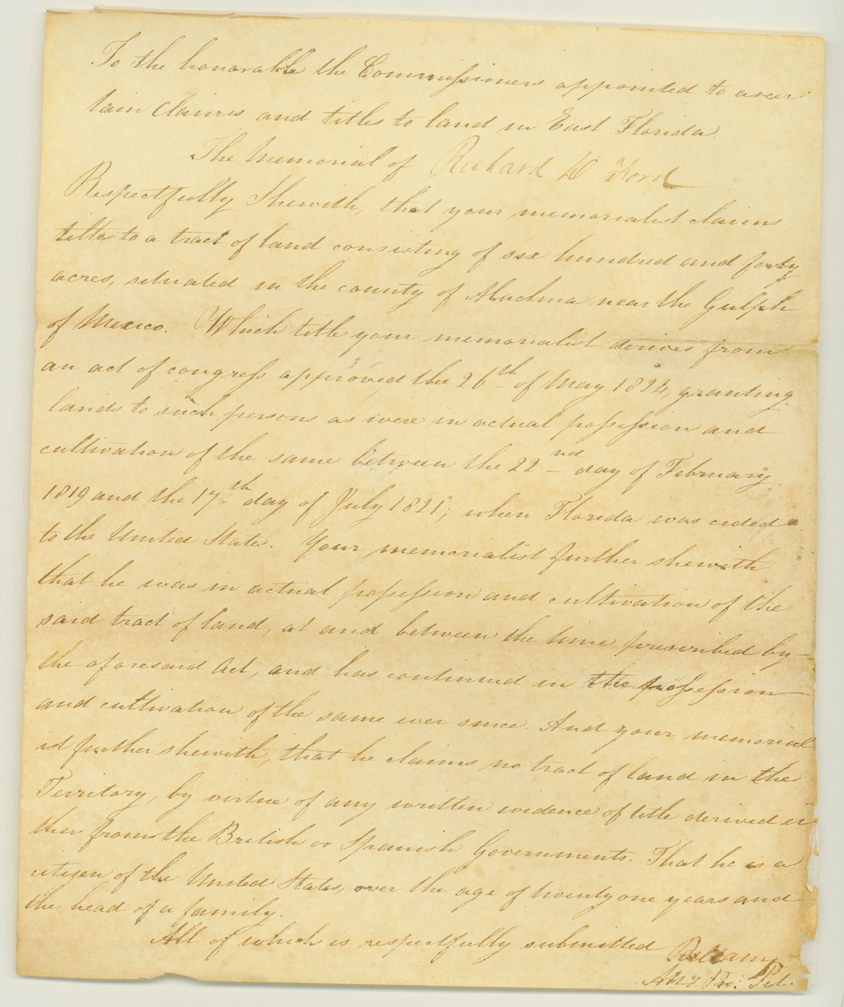 To the honorable the Commissioners appointed to ascer
tain claims and titles to land in East Florida.
The Memorial of Richard D Ford
Respectfully Sheweth, that your memorialist claims
title to a tract of land consisting of six hundred and forty
acres, situated in the county of Alachua near the Gulph
of Mexico. Which title your memorialist derives from
an act of congress approved the 26th of May 1824, granting
lands to such persons as were in actual possession and
cultivation of the same between the 22nd day of February
1819 and the 17th day of July 1821, when Florida was ceded
to the United States. Your memorialist further sheweth
that he was in actual possession and cultivation of the
said tract of land, at and between the time prescribed by
the aforesaid Act, and has continued in the possession
and cultivation of the same ever since. And your memorial
ist further sheweth, that he claims no tract of land in the
Territory, by virtue of any written evidence of title derived ei
ther from the British or Spanish Governments. That he is a
citizen of the United States, over the age of twenty one years and
the head of a family.
All of which is respectfully submitted Bellamy
Atty Pro: Pet.